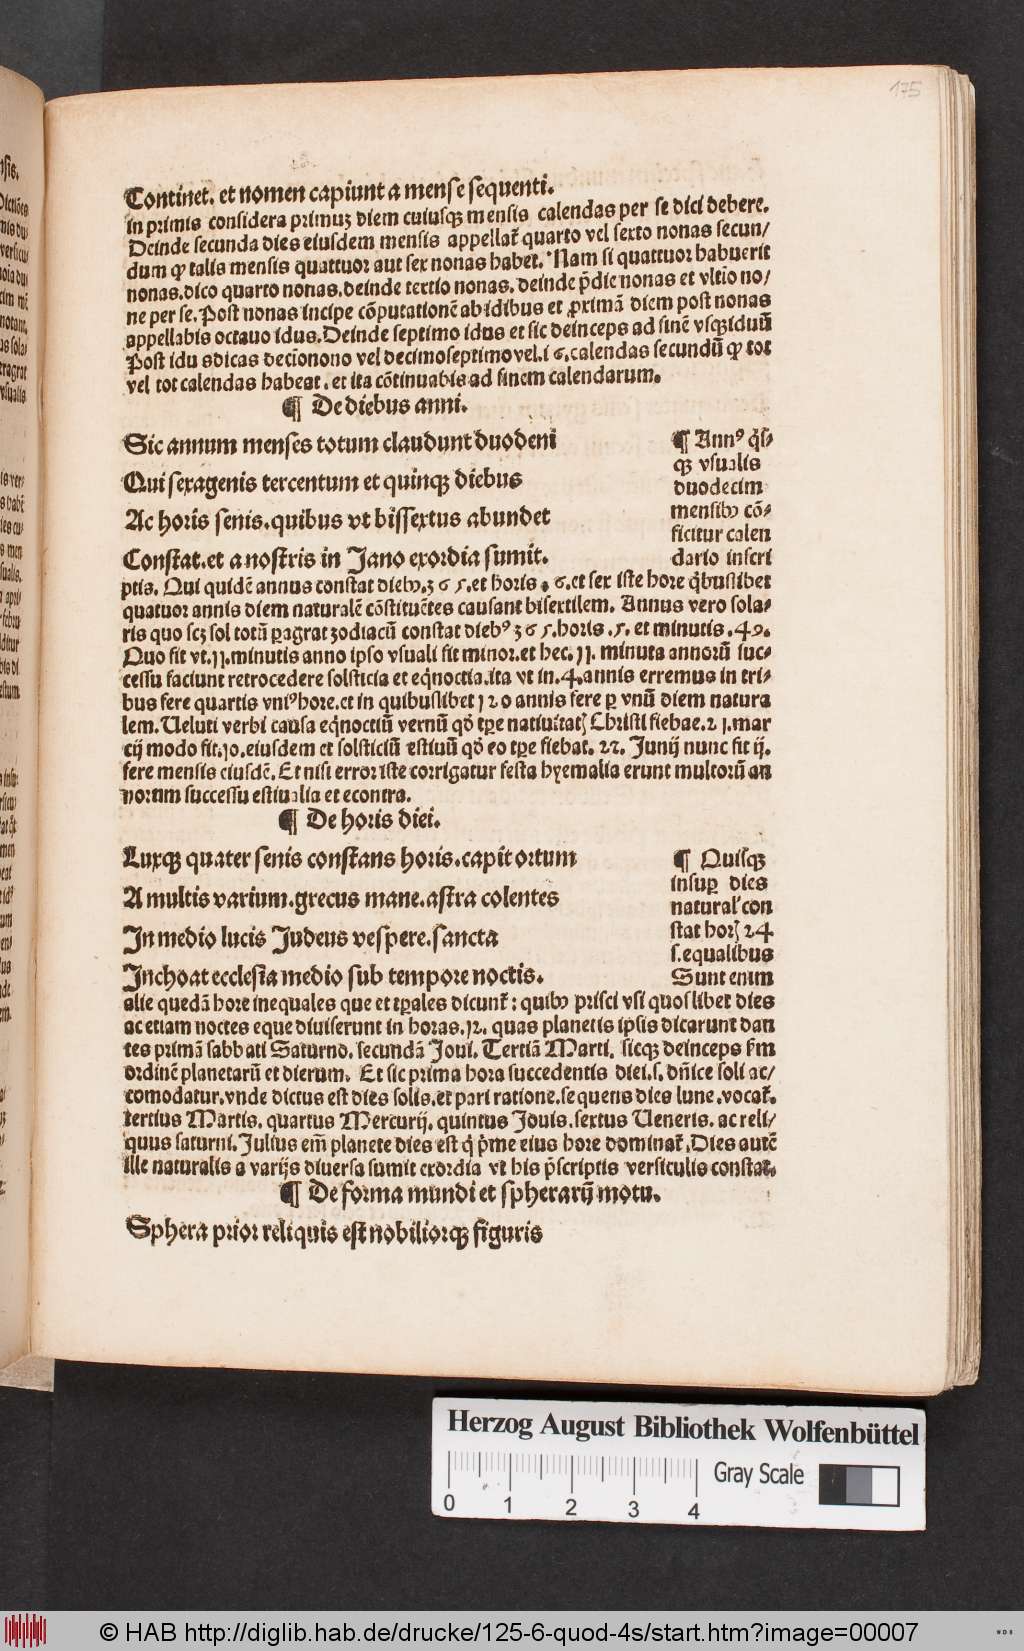 175
Continet. et nomen capiunt a mense sequenti.
in primis considera primuʒ diem cuiusqꝫ mensis calendas per se dici debere.
Deinde secunda dies eiusdem mensis appellat᷑ quarto vel sexto nonas secun/
dum ꝙ talis mensis quattuor aut sex nonas habet. Nam si quattuor habuerit
nonas.dico quarto nonas.deinde tertio nonas. deinde p̄die nonas et vltīo no/
ne per se. Post nonas incipe cōputationē ab idibus et ꝓximā diem post nonas
appellabis octauo idus. Deinde septimo idus et sic deinceps ad finē vsqꝫ iduū
Post idus dicas decīonono vel decimoseptimo vel.i 6.calendas secundū ꝙ tot
vel tot calendas habeat.et ita cōtinuabis ad finem calendarum.
¶ De diebus anni.
Sic annum menses totum claudunt duodeni
Qui sexagenis tercentum et quinqꝫ diebus
Ac horis senis.quibus vt bissextus abundet
Constat.et a nostris in Jano exordia sumit.
¶ Annꝰ q̄s/
qꝫ vsualis
duodecim
mensibꝫ cō/
ficitur calen
dario inscri
ptis. Qui quidē annus constat diebꝫ.365.et horis.6.et sex iste hore q̄buslibet
quatuor annis diem naturalē cōstituētes causant bisextilem. Annus vero sola/
ris quo scꝫ sol totū ꝑagrat zodiacū constat diebꝰ 365.horis.5.et minutis.49.
Quo fit vt.11.minutis anno ipso vsuali fit minor.et hec.11. minuta annorū suc/
cessu faciunt retrocedere solsticia et eq̄noctia.ita vt in.4.annis erremus in tri/
bus fere quartis vniꝰ hore.et in quibuslibet 120 annis fere ꝑ vnū diem natura
lem. Ueluti verbi causa eq̄noctiū vernū qd̄ tp̄e natiuitatꝭ Christi fiebat.21.mar
cij modo fit.10.eiusdem et solsticiū estiuū qd̄ eo tp̄e fiebat.22. Junij nunc fit ij.
fere mensis eiusdē. Et nisi error iste corrigatur festa hyemalia erunt multorū an
norum successu estiualia et econtra.
¶ De horis diei.
Luxqꝫ quater senis constans horis.capit ortum
A multis varium.grecus mane.astra colentes
In medio lucis Judeus vespere.sancta
Inchoat ecclesia medio sub tempore noctis.
¶ Quisqꝫ
insuꝑ dies
natural' con
stat horꝭ 24
s.equalibus
Sunt enim
alie quedā hore inequales que et tp̄ales dicunt᷑: quibꝫ prisci vsi quoslibet dies
ac etiam noctes eque diuiserunt in horas.12. quas planetis ipsis dicarunt dan
tes primā sabbati Saturno. secundā Joui. Tertiā Marti. sicqꝫ deinceps ẜm
ordinē planetarū et dierum. Et sic prima hora succedentis diei.s. dn̄ice soli ac/
comodatur.vnde dictus est dies solis.et pari ratione.sequens dies lune.vocat᷑.
tertius Martis. quartus Mercurij. quintus Jouis.sextus Ueneris. ac reli/
quus saturni. Julius em̄ planete dies est q̄ p̄me eius hore dominat᷑. Dies autē
ille naturalis a varijs diuersa sumit exordia vt his p̄scriptis versiculis constat.
¶ De forma mundi et spherarū motu.
Sphera prior reliquis est nobiliorqꝫ figuris
Herzog August Bibliothek Wolfenbüttel
Gray Scale
0 1 2 3 4
© HAB http://diglib.hab.de/drucke/125-6-quod-4s/start.htm?image=00007